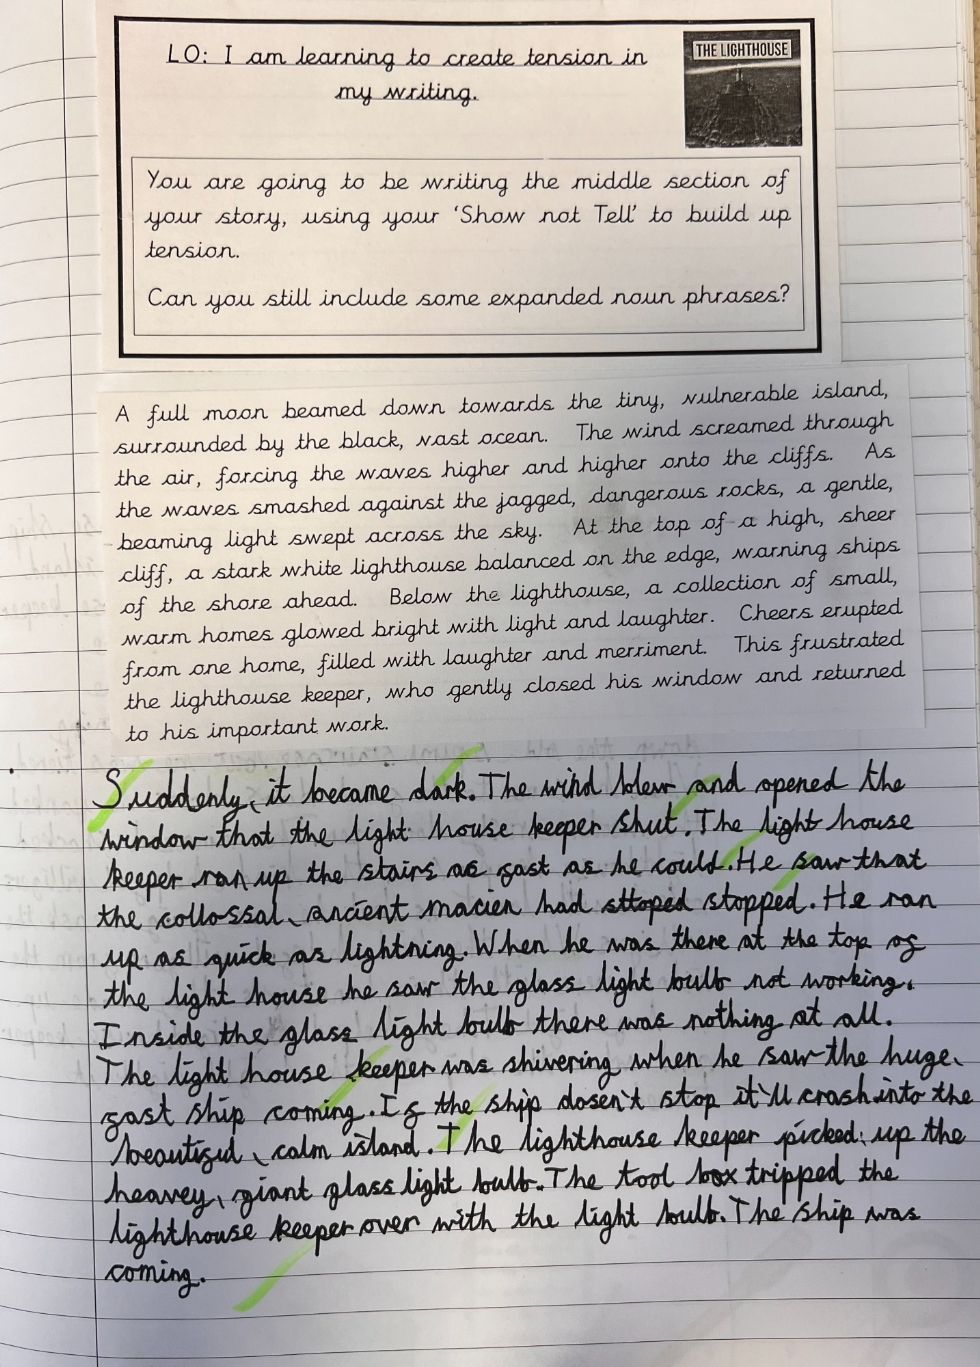 LO: I am learning to create tension in
my writing.
THE LIGHTHOUSE
You are going to be writing the middle section of
your story, using your ‘Show not Tell’ to build up
tension.
Can you still include some expanded noun phrases?
A full moon beamed down towards the tiny, vulnerable island,
surrounded by the black, vast ocean. The wind screamed through
the air, forcing the waves higher and higher onto the cliffs. As
the waves smashed against the jagged, dangerous rocks, a gentle,
beaming light swept across the sky. At the top of a high, sheer
cliff, a stark white lighthouse balanced on the edge, warning ships
of the shore ahead. Below the lighthouse, a collection of small,
warm homes glowed bright with light and laughter. Cheers erupted
from one home, filled with laughter and merriment. This frustrated
the lighthouse keeper, who gently closed his window and returned
to his important work.
Suddenly, it became dark. The wind blew and opened the
window that the light house keeper shut. The light house
keeper ran up the stairs as fast as he could. He saw that
the collossal, ancient macien had sttoped stopped. He ran
up as quick as lightning. When he was there at the top of
the light house he saw the glass light bulb not working.
Inside the glass light bulb there was nothing at all.
The light house keeper was shivering when he saw the huge,
fast ship coming. If the ship dosen't stop it'll crash into the
beautiful, calm island. The lighthouse keeper picked up the
heavey, giant glass light bulb. The tool box tripped the
lighthouse keeper over with the light bulb. The ship was
coming.